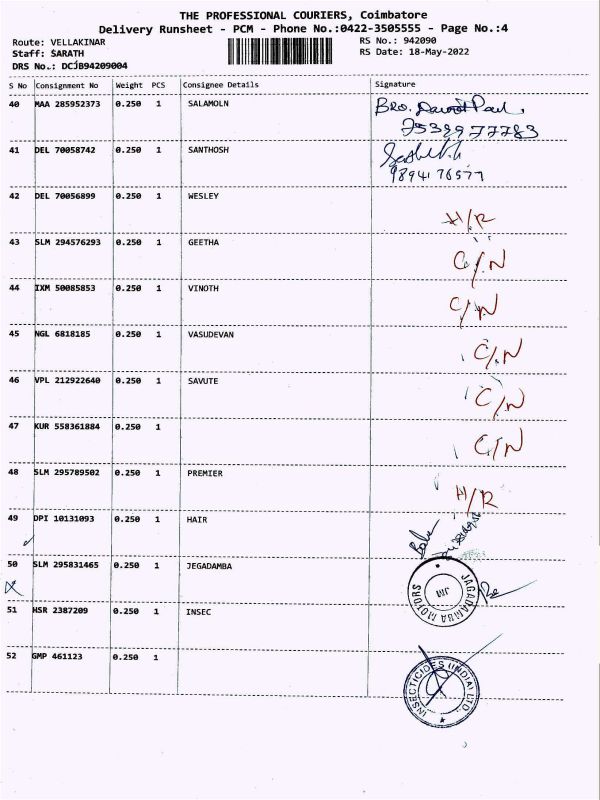 THE PROFESSIONAL COURIERS, Coimbatore
Delivery Runsheet - PCM - Phone No.:0422-3505555 - Page No.:4
Route: VELLAKINAR RS No.: 942090
Staff: SARATH RS Date: 18-May-2022
DRS No.: DCJB94209004
S No Consignment No Weight PCS Consignee Details Signature
40 MAA 285952373 0.250 1 SALAMOLN Bro. David Paul
7538977783
41 DEL 70058742 0.250 1 SANTHOSH
9894176577
42 DEL 70056899 0.250 1 WESLEY H/R
43 SLM 294576293 0.250 1 GEETHA C/N
44 IXM 50085853 0.250 1 VINOTH C/N
45 NGL 6818185 0.250 1 VASUDEVAN C/N
46 VPL 212922640 0.250 1 SAVUTE C/N
47 KUR 558361884 0.250 1 C/N
48 SLM 295789502 0.250 1 PREMIER H/R
49 DPI 10131093 0.250 1 HAIR
50 SLM 295831465 0.250 1 JEGADAMBA
JAGADAMBA MOTORS
JM
51 HSR 2387209 0.250 1 INSEC
52 GMP 461123 0.250 1
INSECTICIDES (INDIA) LTD.